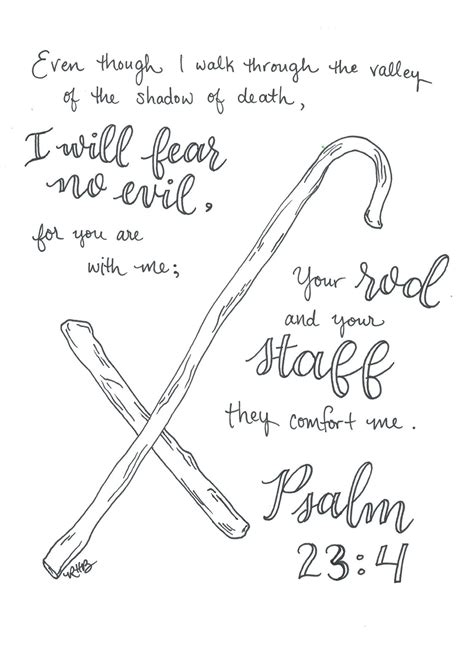 Even though I walk through the valley
of the shadow of death,
I will fear
no evil,
for you are
with me;
Your rod
and your
staff
they comfort me.
Psalm
23:4